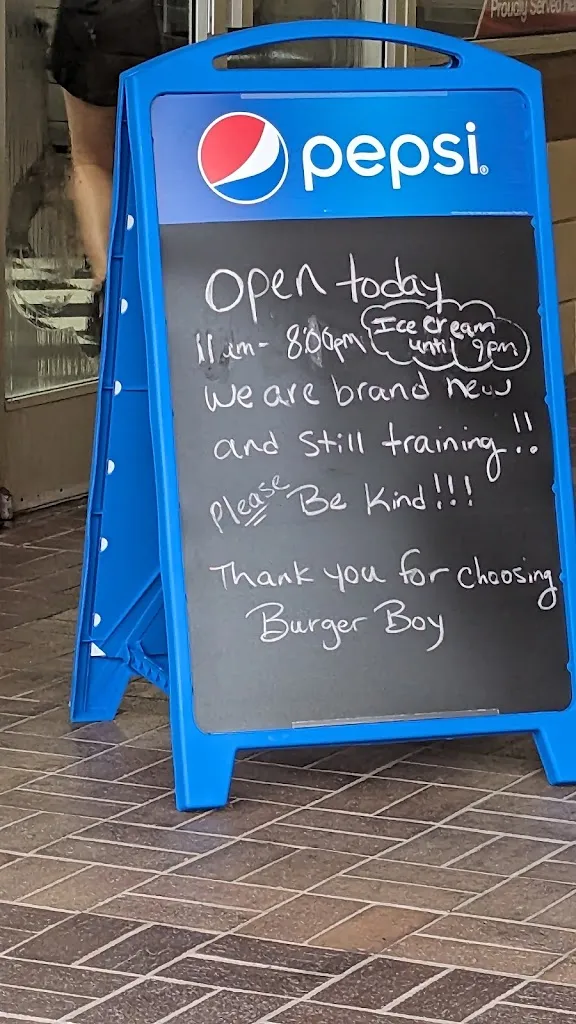 Proudly Served He
pepsi
Open today
11am- 8:00pm
Ice cream
until 9pm
we are brand new
and still training!!
Please Be Kind!!!
Thank you for choosing
Burger Boy